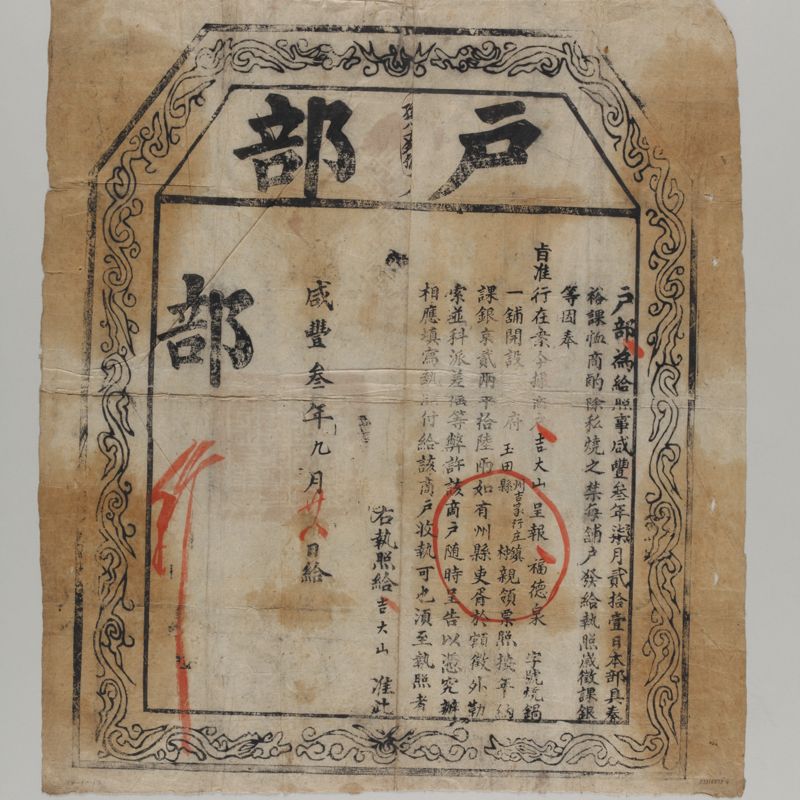 戶部
戶部為給照事咸豐叁年柒月貳拾壹日本部具奏
裕課恤商酌除私燒之禁每舖戶發給執照咸徵課銀
等因奉
旨准行在案今據商戶吉大山呈報 福德泉 字號燒鍋
一舖開設 府 玉田縣 州吉家行庄鎮 村親領票照按年納
課銀京貳兩平拾陸兩如有州縣吏胥於額徵外勒
索並科派差徭等弊許該商戶随時呈告以憑究辦
相應填寫執照付給該商戶收執可也須至執照者
右執照給吉大山 准此
咸豐叁年九月廿八日給
部